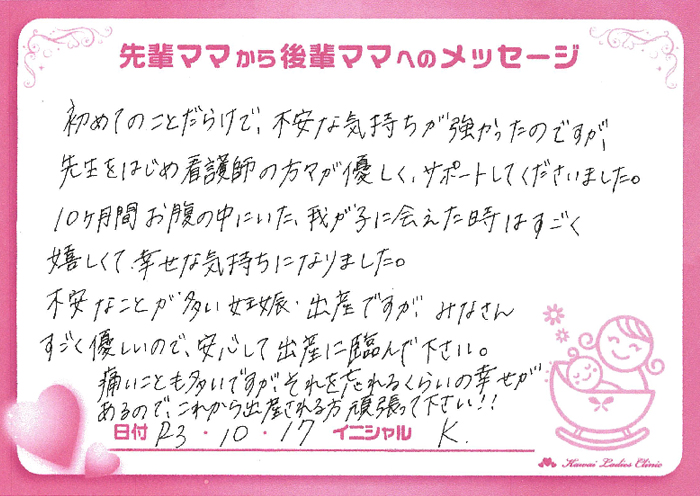 先輩ママから後輩ママへのメッセージ
初めてのことだらけで、不安な気持ちが強かったのですが、
先生をはじめ看護師の方々が優しく、サポートしてくださいました。
10ヶ月間お腹の中にいた、我が子に会えた時はすごく
嬉しくて、幸せな気持ちになりました。
不安なことが多い妊娠・出産ですが、みなさん
すごく優しいので、安心して出産に臨んで下さい。
痛いことも多いですが、それを忘れるくらいの幸せが
あるので、これから出産される方頑張って下さい!!
日付 R3・10・17 イニシャル K.
Kawai Ladies Clinic